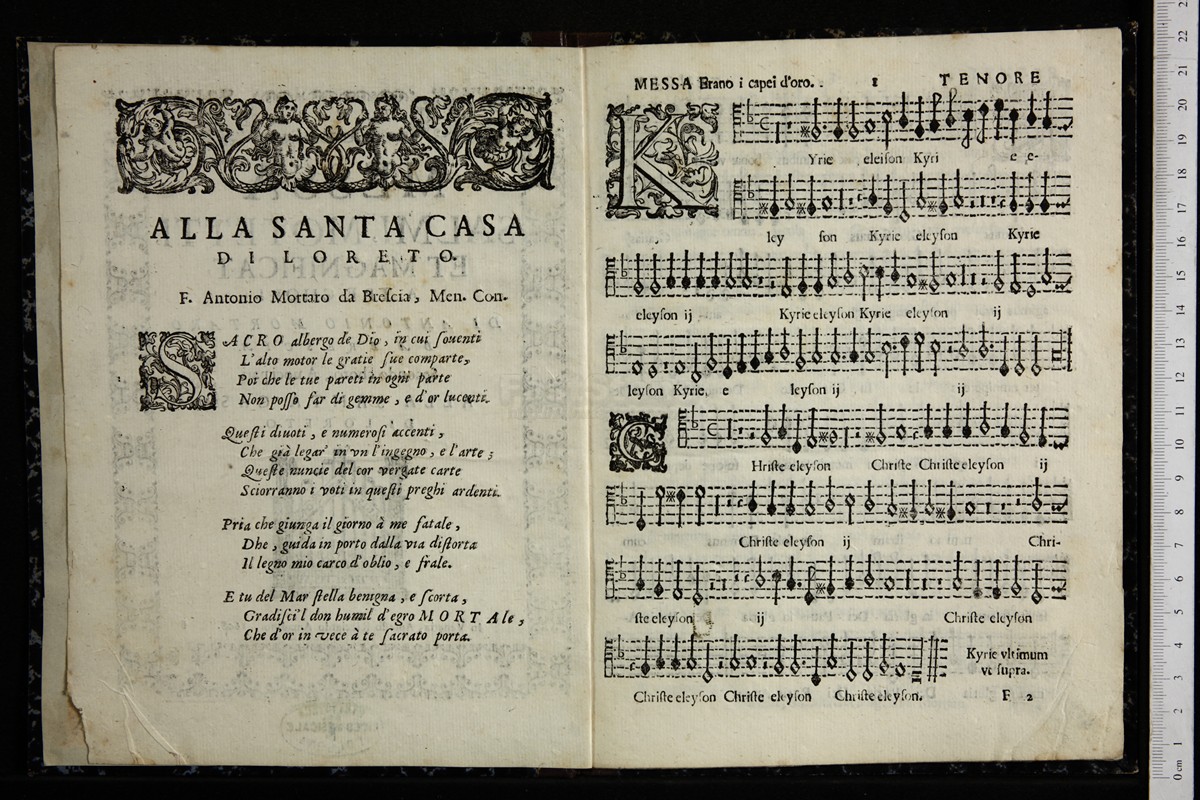 ALLA SANTA CASA
DI LORETO.
F. Antonio Mortaro da Brescia, Men. Con.
SACRO albergo de Dio, in cui souenti
L'alto motor le gratie sue comparte,
Poi che le tue pareti in ogni parte
Non posso far di gemme, e d'or lucenti.
Questi diuoti, e numerosi accenti,
Che già legar' in vn l'ingegno, e l'arte;
Queste nuncie del cor vergate carte
Sciorranno i voti in questi preghi ardenti.
Pria che giunga il giorno à me fatale,
Dhe, guida in porto dalla via distorta
Il legno mio carco d'oblio, e frale.
E tu del Mar stella benigna, e scorta,
Gradisci'l don humil d'egro MORTAle,
Che d'or in vece à te sacrato porta.
MESSA Erano i capei d'oro. 1 TENORE
KYrie eleison Kyri e e-
ley son Kyrie eleyson Kyrie
eleyson ij Kyrie eleyson Kyrie eleyson ij
leyson Kyrie, e leyson ij ij
CHriste eleyson Christe Christe eleyson ij
Christe eleyson ij Chri-
ste eleyson ij Christe eleyson
Christe eleyson Christe eleyson Christe eleyson.
Kyrie vltimum
vt supra.
F 2
0 cm 1 2 3 4 5 6 7 8 9 10 11 12 13 14 15 16 17 18 19 20 21 22